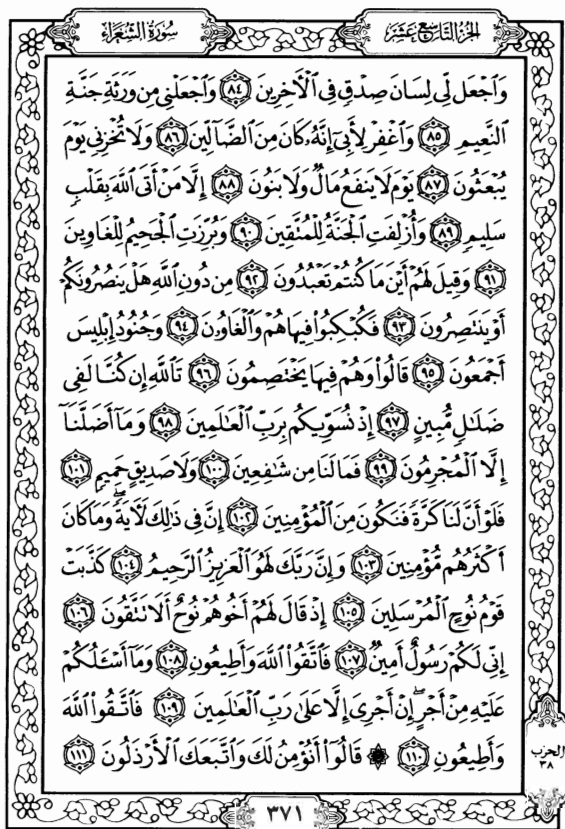 الجزء التاسع عشر
سورة الشعراء
وَٱجْعَل لِّى لِسَانَ صِدْقٍ فِى ٱلْءَاخِرِينَ ٨٤ وَٱجْعَلْنِى مِن وَرَثَةِ جَنَّةِ
ٱلنَّعِيمِ ٨٥ وَٱغْفِرْ لِأَبِىٓ إِنَّهُۥ كَانَ مِنَ ٱلضَّآلِّينَ ٨٦ وَلَا تُخْزِنِى يَوْمَ
يُبْعَثُونَ ٨٧ يَوْمَ لَا يَنفَعُ مَالٌ وَلَا بَنُونَ ٨٨ إِلَّا مَنْ أَتَى ٱللَّهَ بِقَلْبٍ
سَلِيمٍ ٨٩ وَأُزْلِفَتِ ٱلْجَنَّةُ لِلْمُتَّقِينَ ٩٠ وَبُرِّزَتِ ٱلْجَحِيمُ لِلْغَاوِينَ
٩١ وَقِيلَ لَهُمْ أَيْنَ مَا كُنتُمْ تَعْبُدُونَ ٩٢ مِن دُونِ ٱللَّهِ هَلْ يَنصُرُونَكُمْ
أَوْ يَنتَصِرُونَ ٩٣ فَكُبْكِبُوا۟ فِيهَا هُمْ وَٱلْغَاوُۥنَ ٩٤ وَجُنُودُ إِبْلِيسَ
أَجْمَعُونَ ٩٥ قَالُوا۟ وَهُمْ فِيهَا يَخْتَصِمُونَ ٩٦ تَٱللَّهِ إِن كُنَّا لَفِى
ضَلَٰلٍ مُّبِينٍ ٩٧ إِذْ نُسَوِّيكُم بِرَبِّ ٱلْعَٰلَمِينَ ٩٨ وَمَآ أَضَلَّنَآ
إِلَّا ٱلْمُجْرِمُونَ ٩٩ فَمَا لَنَا مِن شَٰفِعِينَ ١٠٠ وَلَا صَدِيقٍ حَمِيمٍ ١٠١
فَلَوْ أَنَّ لَنَا كَرَّةً فَنَكُونَ مِنَ ٱلْمُؤْمِنِينَ ١٠٢ إِنَّ فِى ذَٰلِكَ لَءَايَةًۖ وَمَا كَانَ
أَكْثَرُهُم مُّؤْمِنِينَ ١٠٣ وَإِنَّ رَبَّكَ لَهُوَ ٱلْعَزِيزُ ٱلرَّحِيمُ ١٠٤ كَذَّبَتْ
قَوْمُ نُوحٍ ٱلْمُرْسَلِينَ ١٠٥ إِذْ قَالَ لَهُمْ أَخُوهُمْ نُوحٌ أَلَا تَتَّقُونَ ١٠٦
إِنِّى لَكُمْ رَسُولٌ أَمِينٌ ١٠٧ فَٱتَّقُوا۟ ٱللَّهَ وَأَطِيعُونِ ١٠٨ وَمَآ أَسْـَٔلُكُمْ
عَلَيْهِ مِنْ أَجْرٍۖ إِنْ أَجْرِىَ إِلَّا عَلَىٰ رَبِّ ٱلْعَٰلَمِينَ ١٠٩ فَٱتَّقُوا۟ ٱللَّهَ
وَأَطِيعُونِ ١١٠ ۞ قَالُوٓا۟ أَنُؤْمِنُ لَكَ وَٱتَّبَعَكَ ٱلْأَرْذَلُونَ ١١١
الحزب
٣٨
٣٧١